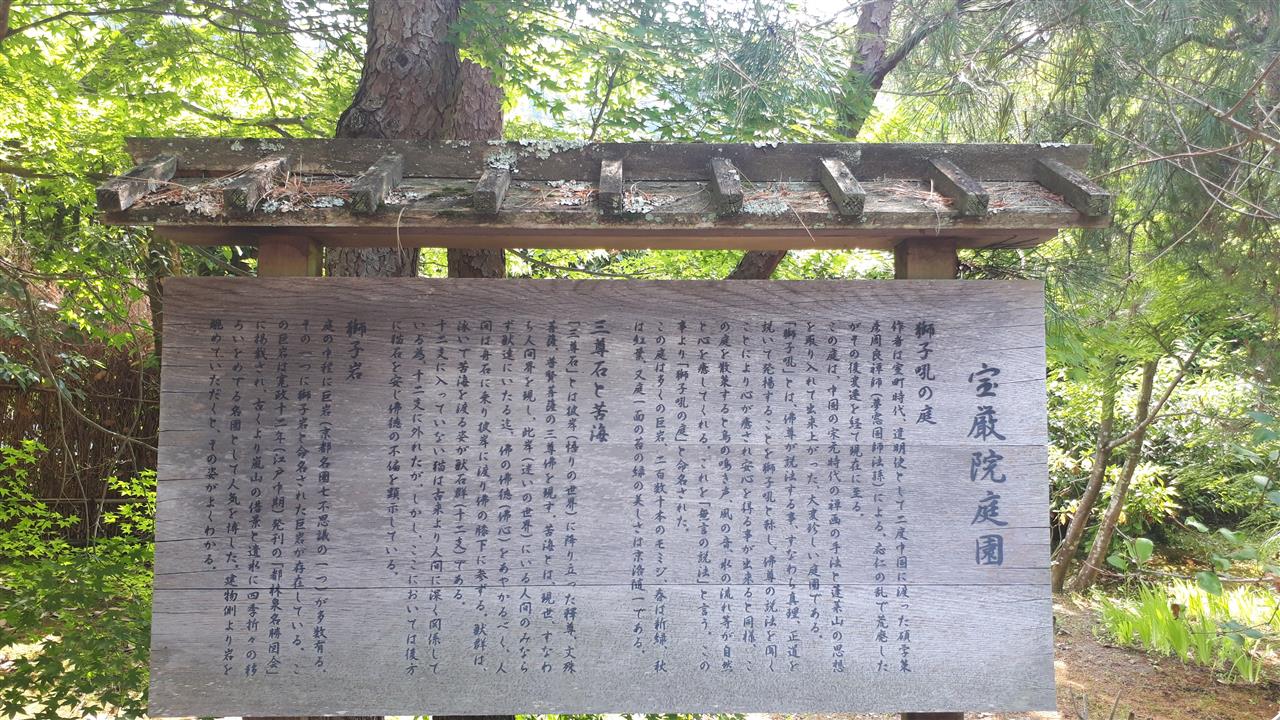 宝厳院庭園
獅子吼の庭
作者は室町時代、遣明使として二度中国に渡った碩学策
彦周良禅師(夢窓国師法孫)による。応仁の乱で荒廃した
がその後変遷を経て現在に至る。
この庭は、中国の宋元時代の禅画の手法と蓬莱山の思想
を取り入れて出来上がった、大変珍しい庭園である。
「獅子吼」とは、佛尊が説法する事、すなわち真理、正道を
説いて発揚することを獅子吼と称し、佛尊の説法を聞く
ことにより心が癒され安心を得る事が出来ると同様、こ
の庭を散策すると鳥の鳴き声、風の音、水の流れ等が自然
と心を癒してくれる。これを「無言の説法」と言う。この
事より「獅子吼の庭」と命名された。
この庭は多くの巨岩、二百数十本のモミジ、春は新緑、秋
は紅葉、又庭一面の苔の緑の美しさは京洛随一である。
三尊石と苦海
「三尊石」とは彼岸(悟りの世界)に降り立った釋尊、文殊
菩薩、普賢菩薩の三尊佛を現す。苦海とは、現世、すなわ
ち人間界を現し、此岸(迷いの世界)にいる人間のみなら
ず獣達にいたる迄、佛の佛徳(佛心)をあやかるべく、人
間は舟石に乗り彼岸に渡り佛の膝下に参ずる。獣群は、
泳いで苦海を渡る姿が獣石群(十二支)である。
十二支に入っていない猫は古来より人間に深く関係して
いる為、十二支に外れたが、しかし、ここにおいては後方
に猫石を安し佛徳の不偏を顕示している。
獅子岩
庭の中程に巨岩(京都名園七不思議の一つ)が多数有る。
その一つに獅子岩と命名された巨岩が存在している。こ
の巨岩は寛政十二年(江戸中期)発刊の「都林泉名勝図会」
に掲載され、古くより嵐山の借景と遣水に四季折々の移
ろいをめでる名園として人気を博した。建物側より岩を
眺めていただくと、その姿がよくわかる。